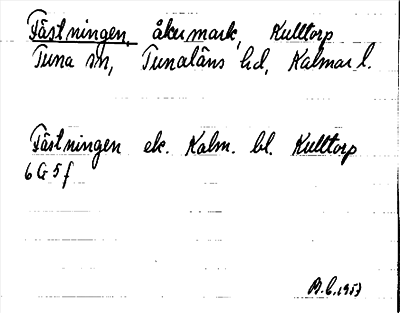 Fästningen, åkermark, Kulltorp
Tuna sn, Tunaläns hd, Kalmar l.
Fästningen ek. Kalm. bl. Kulltorp
6 G 5 f